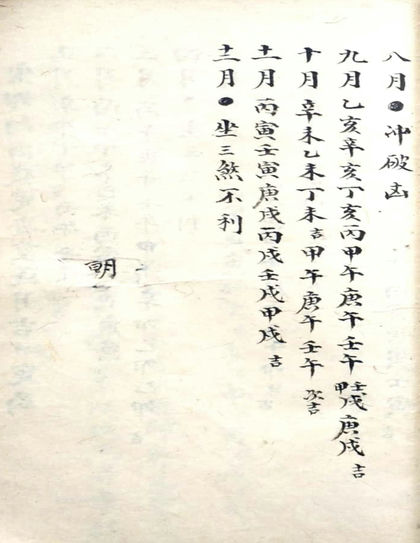 八月●冲破凶
九月乙亥辛亥丁亥丙甲午庚午壬午甲壬戌庚戌吉
十月辛未乙未丁未吉甲午庚午壬午次吉
十一月丙寅壬寅庚戌丙戌壬戌甲戌吉
十二月●坐三煞不利